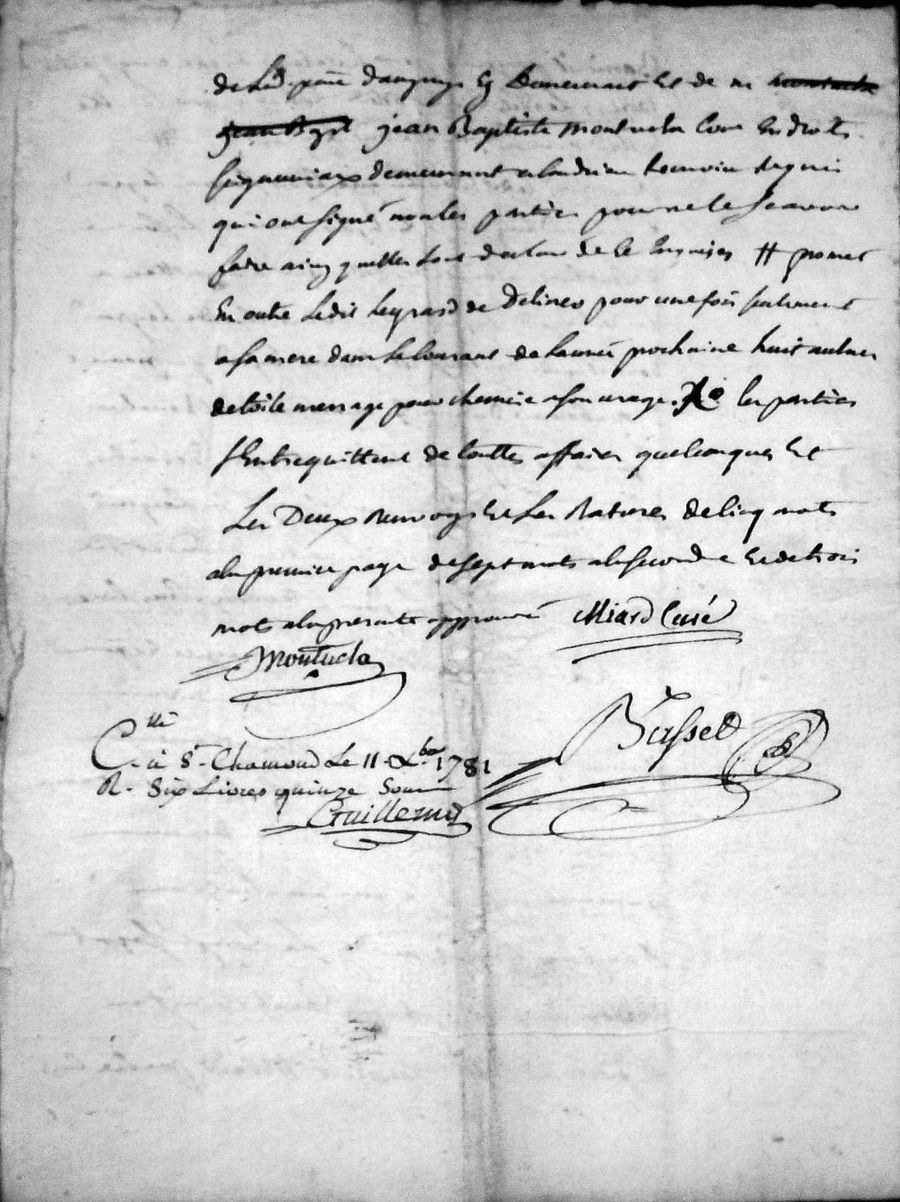 de Lad. parr. y Demeurant Et de m
jean Baptiste montucla Com En droits
seigneuriaux demeurant temoins Requis
qui ont signé non les parties pour ne le scavoir
faire ainsy quelles ont declare de Ce Enquises # promet
En outre Ledit Legrand de Delivrer pour une fois seulement
a sa mere dans le Courant de lannée prochaine huit aulnes
de toile menage pour chemise a son usage. les parties
sEntrequittent de touttes affaires quelconques Et
Les Deux Renvoys Et Les Ratures de Cinq mots
a la premiere page de sept mots a la seconde et de trois
mots a la presente approuvé Miard Curé
Montucla
Basset
C.lle à St. Chamond Le 11 Xbre 1781
R. Six Livres quinze Sous
Guillemin